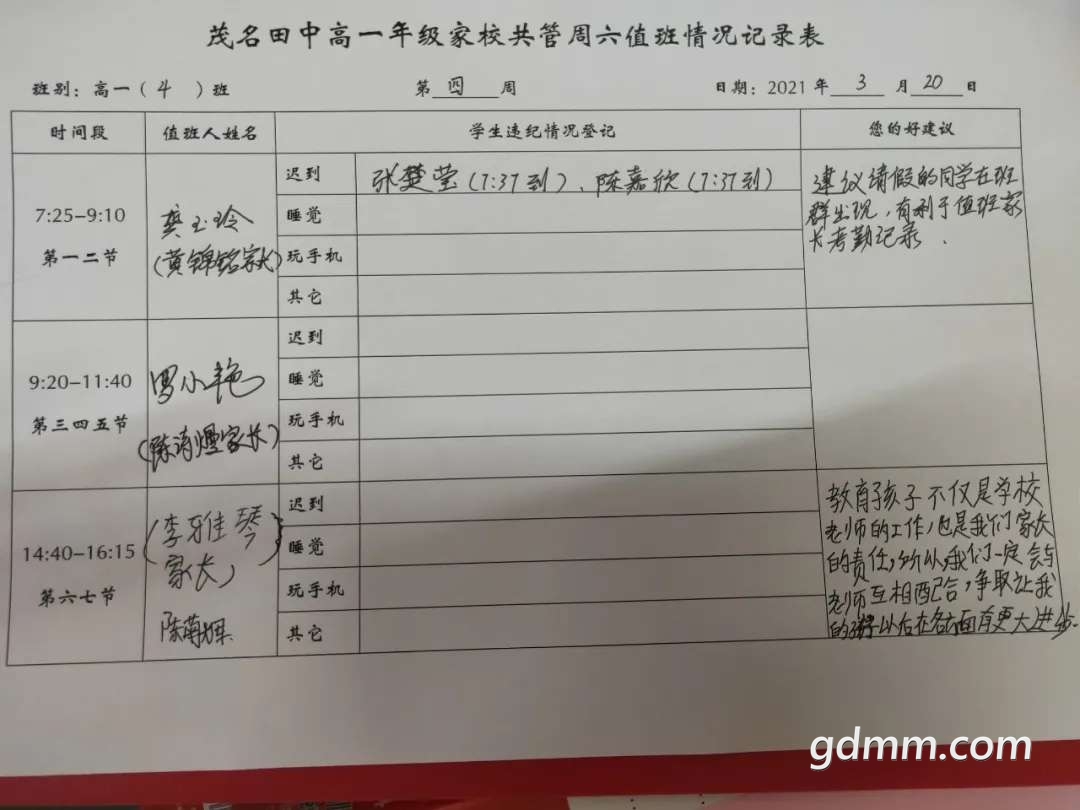 茂名田中高一年级家校共管周六值班情况记录表
班别：高一（ 4 ）班 第 四 周 日期：2021 年 3 月 20 日
时间段 值班人姓名 学生违纪情况登记 您的好建议
7:25-9:10
第一二节
龚玉玲
(黄锦铭家长)
迟到 张楚莹(7:37到)、陈嘉欣(7:37到)
睡觉
玩手机
其它
建议请假的同学在班
群出现,有利于值班家
长考勤记录.
9:20-11:40
第三四五节
罗小艳
家长)
迟到
睡觉
玩手机
其它
14:40-16:15
第六七节
(李雅琴
家长)
陈
迟到
睡觉
玩手机
其它
教育孩子不仅是学校
老师的工作,也是我们家长
的责任,所以,我们一定会与
老师互相配合,争取让我
的孩子以后在各方面有更大进步.
gdmm.com